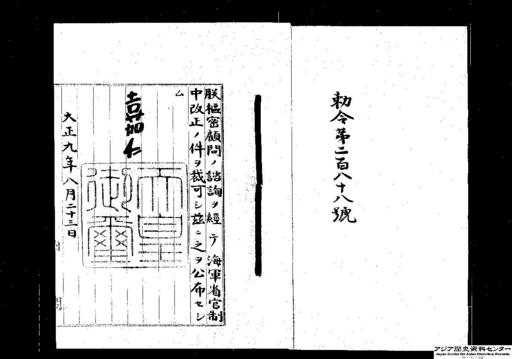 勅令第二百八十八號
朕樞密顧問ノ諮詢ヲ經テ海軍省官制
中改正ノ件ヲ裁可シ茲ニ之ヲ公布セシ
ム
嘉仁
天皇
御璽
大正九年八月二十三日
アジア歴史資料センター
Japan Center for Asian Historical Records